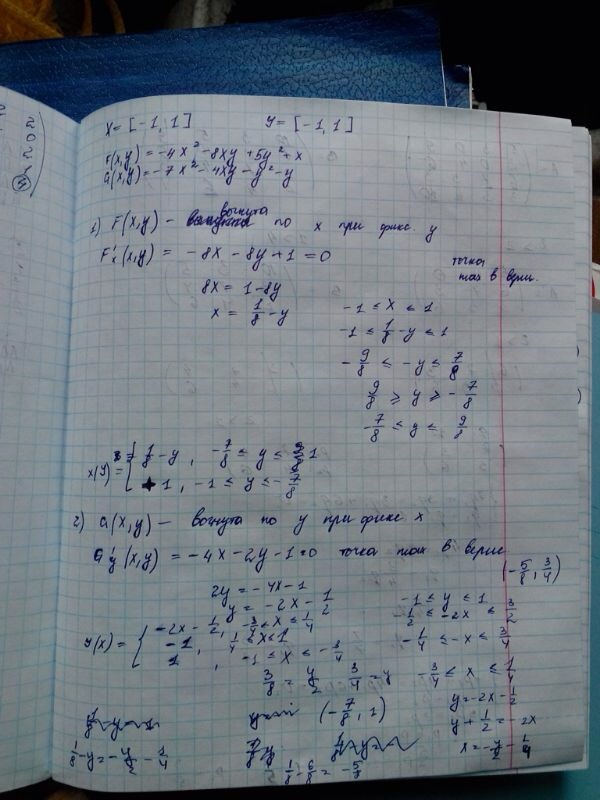 X = [-1, 1]   Y = [-1, 1]
F(x,y) = -4x² - 8xy + 5y² + x
G(x,y) = -7x² - 4xy - y² - y
1) F(x,y) - вогнута по x при фикс. y
F'x(x,y) = -8x - 8y + 1 = 0
точка max в верш.
8x = 1 - 8y
x = 1/8 - y
-1 ≤ x ≤ 1
-1 ≤ 1/8 - y ≤ 1
-9/8 ≤ -y ≤ 7/8
9/8 ≥ y ≥ -7/8
-7/8 ≤ y ≤ 9/8
x(y) = { 1/8 - y, -7/8 ≤ y ≤ 1
1, -1 ≤ y ≤ -7/8
2) G(x,y) - вогнута по y при фикс. x
G'y(x,y) = -4x - 2y - 1 = 0 точка max в верш.
(-5/8, 3/4)
2y = -4x - 1
y = -2x - 1/2
-1 ≤ y ≤ 1
-1/2 ≤ -2x ≤ 3/2
-1/4 ≤ -x ≤ 3/4
-3/4 ≤ x ≤ 1/4
y(x) = { -2x - 1/2, -3/4 ≤ x ≤ 1/4
-1, 1/4 ≤ x ≤ 1
1, -1 ≤ x ≤ -3/4
3/8 = y/2   3/4 = y
y = -2x - 1/2
y + 1/2 = -2x
x = -y/2 - 1/4
(-7/8, 1)
1/8 - y = -y/2 - 1/4
1/8 - 6/8 = -5/8